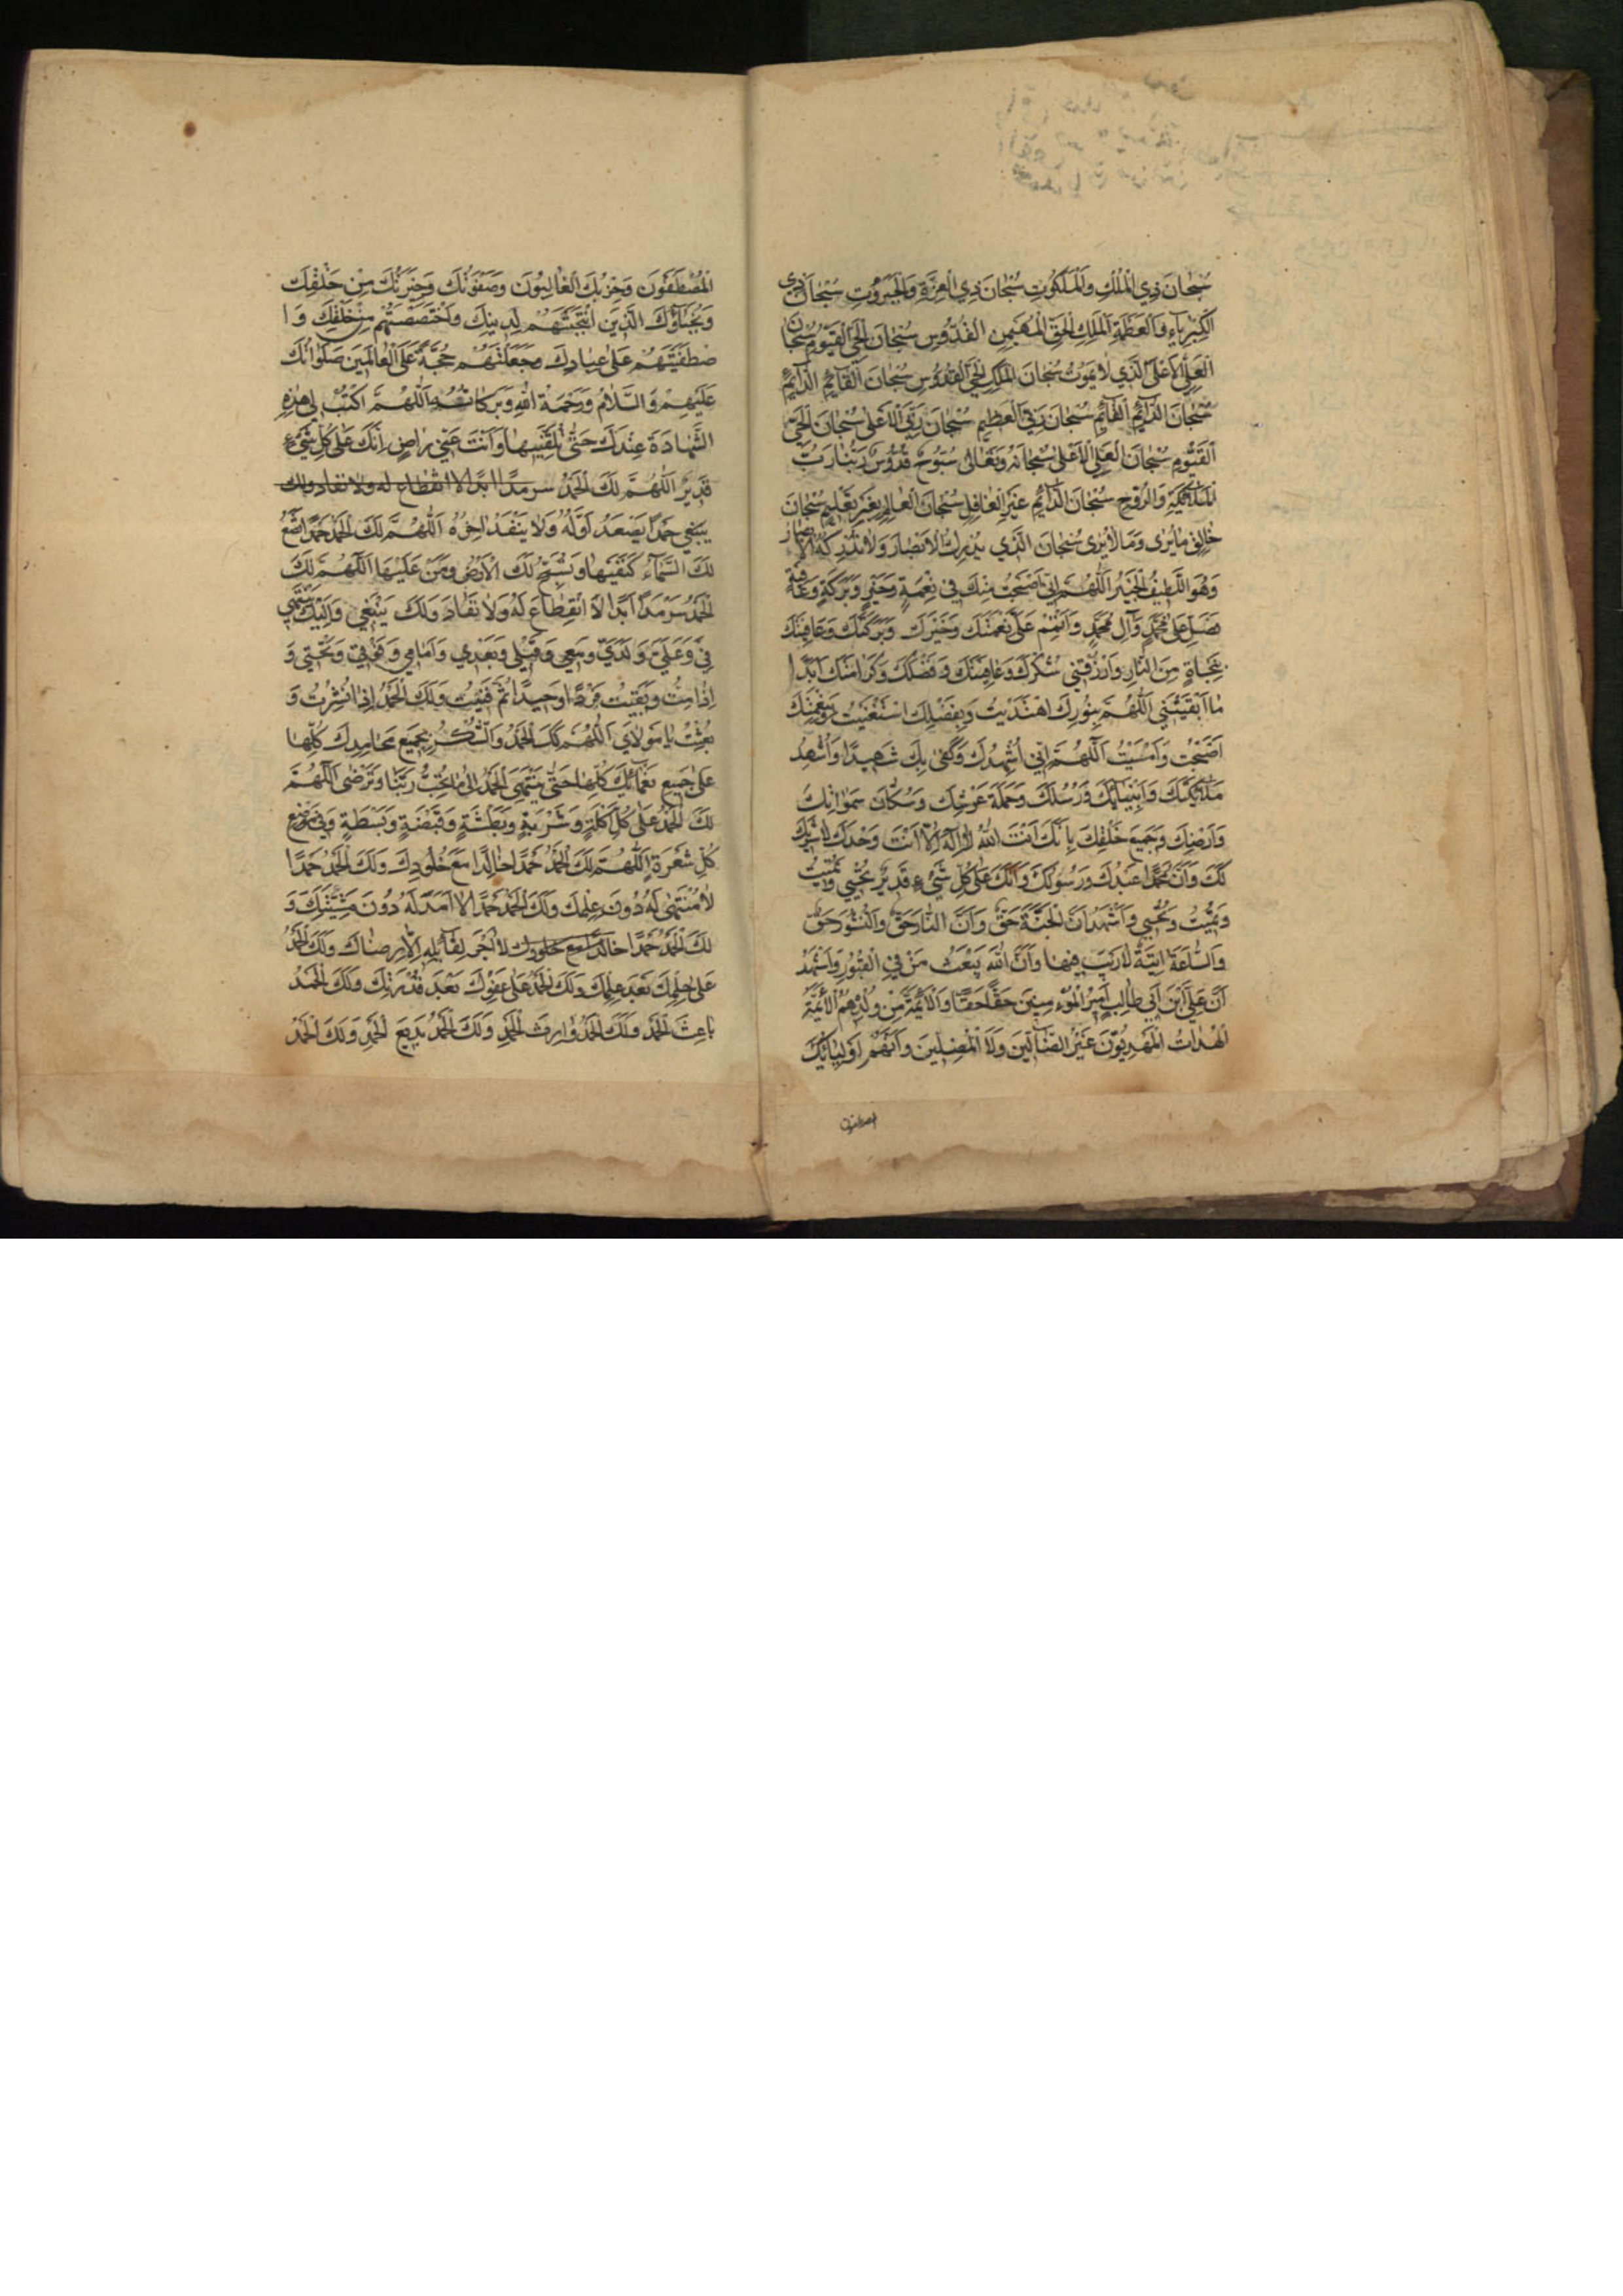 سُبْحَانَ ذِي الْمُلْكِ وَالْمَلَكُوتِ سُبْحَانَ ذِي الْعِزَّةِ وَالْجَبَرُوتِ سُبْحَانَ ذِي
الْكِبْرِيَاءِ وَالْعَظَمَةِ الْمَلِكِ الْحَقِّ الْمُهَيْمِنِ الْقُدُّوسِ سُبْحَانَ الْحَيِّ الْقَيُّومِ سُبْحَانَ
الْعَلِيِّ الْأَعْلَى الَّذِي لَا يَمُوتُ سُبْحَانَ الْمَلِكِ الْحَيِّ الْقُدُّوسِ سُبْحَانَ الْقَائِمِ الدَّائِمِ
سُبْحَانَ الدَّائِمِ الْقَائِمِ سُبْحَانَ رَبِّيَ الْعَظِيمِ سُبْحَانَ رَبِّيَ الْأَعْلَى سُبْحَانَ الْحَيِّ
الْقَيُّومِ سُبْحَانَ الْعَلِيِّ الْأَعْلَى سُبْحَانَهُ وَتَعَالَى سُبُّوحٌ قُدُّوسٌ رَبُّنَا رَبُّ
الْمَلَائِكَةِ وَالرُّوحِ سُبْحَانَ الدَّائِمِ غَيْرِ الْغَافِلِ سُبْحَانَ الْعَالِمِ بِغَيْرِ تَعْلِيمٍ سُبْحَانَ
خَالِقِ مَا يُرَى وَمَا لَا يُرَى سُبْحَانَ الَّذِي يُدْرِكُ الْأَبْصَارَ وَلَا تُدْرِكُهُ الْأَبْصَارُ
وَهُوَ اللَّطِيفُ الْخَبِيرُ اللَّهُمَّ إِنِّي أَصْبَحْتُ مِنْكَ فِي نِعْمَةٍ وَخَيْرٍ وَبَرَكَةٍ وَعَافِيَةٍ
فَصَلِّ عَلَى مُحَمَّدٍ وَآلِ مُحَمَّدٍ وَأَتْمِمْ عَلَيَّ نِعْمَتَكَ وَخَيْرَكَ وَبَرَكَتَكَ وَعَافِيَتَكَ
بِنَجَاةٍ مِنَ النَّارِ وَارْزُقْنِي شُكْرَكَ وَعَافِيَتَكَ وَفَضْلَكَ وَكَرَامَتَكَ أَبَدًا
مَا أَبْقَيْتَنِي اللَّهُمَّ بِنُورِكَ اهْتَدَيْتُ وَبِفَضْلِكَ اسْتَغْنَيْتُ وَبِنِعْمَتِكَ
أَصْبَحْتُ وَأَمْسَيْتُ اللَّهُمَّ إِنِّي أُشْهِدُكَ وَكَفَى بِكَ شَهِيدًا وَأُشْهِدُ
مَلَائِكَتَكَ وَأَنْبِيَائَكَ وَرُسُلَكَ وَحَمَلَةَ عَرْشِكَ وَسُكَّانَ سَمَوَاتِكَ
وَأَرْضِكَ وَجَمِيعَ خَلْقِكَ بِأَنَّكَ أَنْتَ اللَّهُ لَا إِلَهَ إِلَّا أَنْتَ وَحْدَكَ لَا شَرِيكَ
لَكَ وَأَنَّ مُحَمَّدًا عَبْدُكَ وَرَسُولُكَ وَأَنَّكَ عَلَى كُلِّ شَيْءٍ قَدِيرٌ تُحْيِي وَتُمِيتُ
وَتُمِيتُ وَتُحْيِي وَأَشْهَدُ أَنَّ الْجَنَّةَ حَقٌّ وَأَنَّ النَّارَ حَقٌّ وَالنُّشُورَ حَقٌّ
وَالسَّاعَةَ آتِيَةٌ لَا رَيْبَ فِيهَا وَأَنَّ اللَّهَ يَبْعَثُ مَنْ فِي الْقُبُورِ وَأَشْهَدُ
أَنَّ عَلِيَّ ابْنَ أَبِي طَالِبٍ أَمِيرُ الْمُؤْمِنِينَ حَقًّا حَقًّا وَالْأَئِمَّةَ مِنْ وُلْدِهِ هُمُ الْأَئِمَّةُ
الْهُدَاتُ الْمَهْدِيُّونَ غَيْرُ الضَّالِّينَ وَلَا الْمُضِلِّينَ وَأَنَّهُمْ أَوْلِيَائُكَ
المصطفون
الْمُصْطَفَوْنَ وَحِزْبُكَ الْغَالِبُونَ وَصَفْوَتُكَ وَخِيَرَتُكَ مِنْ خَلْقِكَ
وَنُجَبَاؤُكَ الَّذِينَ انْتَجَبْتَهُمْ لِدِينِكَ وَاخْتَصَصْتَهُمْ مِنْ خَلْقِكَ وَا
صْطَفَيْتَهُمْ عَلَى عِبَادِكَ وَجَعَلْتَهُمْ حُجَّةً عَلَى الْعَالَمِينَ صَلَوَاتُكَ
عَلَيْهِمْ وَالسَّلَامُ وَرَحْمَةُ اللَّهِ وَبَرَكَاتُهُ اللَّهُمَّ اكْتُبْ لِي هَذِهِ
الشَّهَادَةَ عِنْدَكَ حَتَّى تُلَقِّنِّيهَا وَأَنْتَ عَنِّي رَاضٍ إِنَّكَ عَلَى كُلِّ شَيْءٍ
قَدِيرٌ اللَّهُمَّ لَكَ الْحَمْدُ سرمدًا ابدًا لا انقطاع له ولا نفاد ولك
يَنْبَغِي حَمْدًا يَصْعَدُ أَوَّلُهُ وَلَا يَنْفَدُ آخِرُهُ اللَّهُمَّ لَكَ الْحَمْدُ حَمْدًا تَضَعُ
لَكَ السَّمَاءُ كَنَفَيْهَا وَتُسَبِّحُ لَكَ الْأَرْضُ وَمَنْ عَلَيْهَا اللَّهُمَّ لَكَ
الْحَمْدُ سَرْمَدًا أَبَدًا لَا انْقِطَاعَ لَهُ وَلَا نَفَادَ وَلَكَ يَنْبَغِي وَإِلَيْكَ يَنْتَهِي
فِيَّ وَعَلَيَّ وَلَدَيَّ وَمَعِي وَقَبْلِي وَبَعْدِي وَأَمَامِي وَفَوْقِي وَتَحْتِي وَ
إِذَا مِتُّ وَبَقِيتُ فَرْدًا وَحِيدًا ثُمَّ فَنِيتُ وَلَكَ الْحَمْدُ إِذَا نُشِرْتُ وَ
بُعِثْتُ يَا مَوْلَايَ اللَّهُمَّ لَكَ الْحَمْدُ وَالشُّكْرُ بِجَمِيعِ مَحَامِدِكَ كُلِّهَا
عَلَى جَمِيعِ نَعْمَائِكَ كُلِّهَا حَتَّى يَنْتَهِيَ الْحَمْدُ إِلَى مَا تُحِبُّ رَبَّنَا وَتَرْضَى اللَّهُمَّ
لَكَ الْحَمْدُ عَلَى كُلِّ أَكْلَةٍ وَشَرْبَةٍ وَبَطْشَةٍ وَقَبْضَةٍ وَبَسْطَةٍ وَفِي مَوْضِعِ
كُلِّ شَعْرَةٍ اللَّهُمَّ لَكَ الْحَمْدُ حَمْدًا خَالِدًا مَعَ خُلُودِكَ وَلَكَ الْحَمْدُ حَمْدًا
لَا مُنْتَهَى لَهُ دُونَ عِلْمِكَ وَلَكَ الْحَمْدُ حَمْدًا لَا أَمَدَ لَهُ دُونَ مَشِيَّتِكَ وَ
لَكَ الْحَمْدُ حَمْدًا خالدًا مع خلودك لَا أَجْرَ لِقَائِلِهِ إِلَّا رِضَاكَ وَلَكَ الْحَمْدُ
عَلَى حِلْمِكَ بَعْدَ عِلْمِكَ وَلَكَ الْحَمْدُ عَلَى عَفْوِكَ بَعْدَ قُدْرَتِكَ وَلَكَ الْحَمْدُ
بَاعِثَ الْحَمْدِ وَلَكَ الْحَمْدُ وَارِثَ الْحَمْدِ وَلَكَ الْحَمْدُ بَدِيعَ الْحَمْدِ وَلَكَ الْحَمْدُ